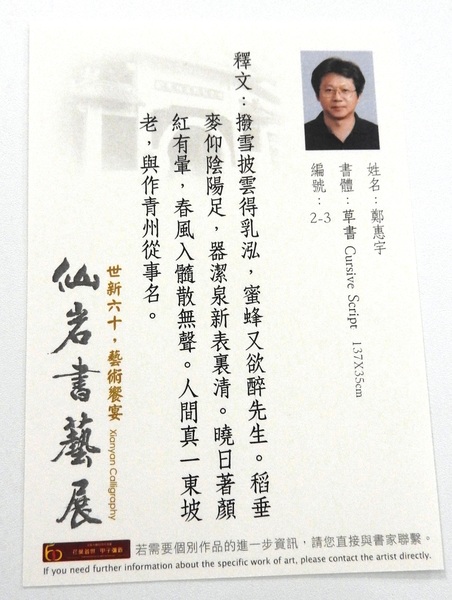 姓名：鄭惠宇
書體：草書 Cursive Script 137X35cm
編號：2-3
釋文：撥雪披雲得乳泓，蜜蜂又欲醉先生。稻垂
麥仰陰陽足，器潔泉新表裏清。曉日著顏
紅有暈，春風入髓散無聲。人間真一東坡
老，與作青州從事名。
世新六十，藝術饗宴 Xianyan Calligraphy
仙岩書藝展
若需要個別作品的進一步資訊，請您直接與書家聯繫。
If you need further information about the specific work of art, please contact the artist directly.